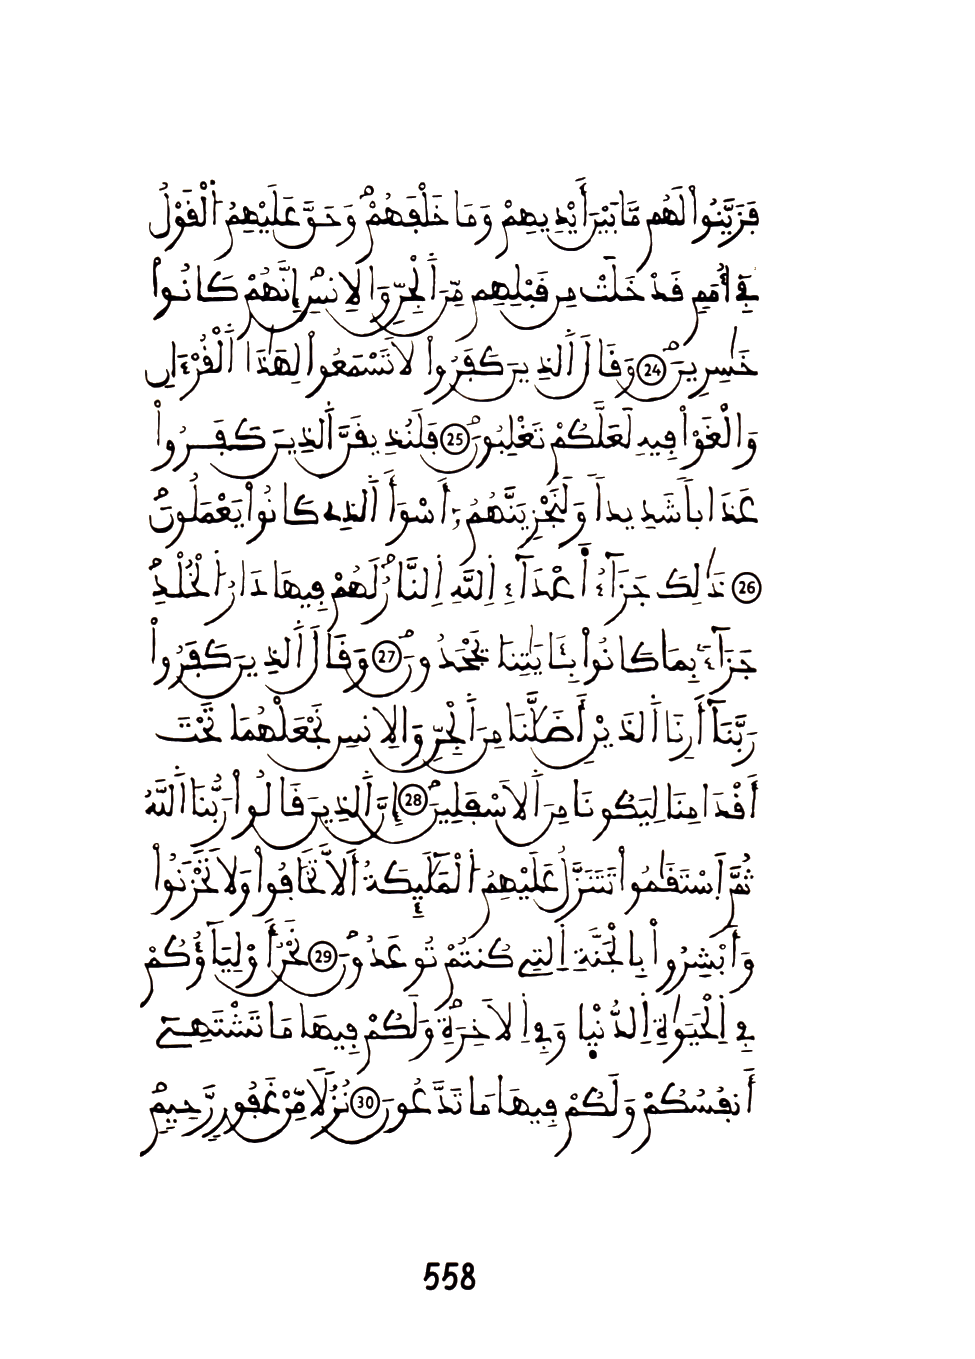 فَزَيَّنُواْ لَهُم مَّا بَيْنَ أَيْدِيهِمْ وَمَا خَلْفَهُمْ وَحَقَّ عَلَيْهِمُ الْقَوْلُ
فِي أُمَمٍ قَدْ خَلَتْ مِن قَبْلِهِم مِّنَ اَلْجِنِّ وَالِانسِ إِنَّهُمْ كَانُواْ
خَٰسِرِينَ 24 وَقَالَ اَلذِينَ كَفَرُواْ لَا تَسْمَعُواْ لِهَٰذَا اَلْقُرْءَانِ
وَالْغَوْاْ فِيهِ لَعَلَّكُمْ تَغْلِبُونَ 25 فَلَنُذِيقَنَّ اَلذِينَ كَفَرُواْ
عَذَاباً شَدِيداً وَلَنَجْزِيَنَّهُمُ أَسْوَأَ اَلذِے كَانُواْ يَعْمَلُونَ
26 ذَٰلِكَ جَزَآءُ اَ۬عْدَآءِ اِللَّهِ اِلنَّارُ لَهُمْ فِيهَا دَارُ اُلْخُلْدِ
جَزَآءَۢ بِمَا كَانُواْ بِـَٔايَٰتِنَا يَجْحَدُونَ 27 وَقَالَ اَلذِينَ كَفَرُواْ
رَبَّنَآ أَرِنَا اَلذَيْنِ أَضَلَّٰنَا مِنَ اَلْجِنِّ وَالِانسِ نَجْعَلْهُمَا تَحْتَ
أَقْدَامِنَا لِيَكُونَا مِنَ اَلَاسْفَلِينَ 28 إِنَّ اَلذِينَ قَالُواْ رَبُّنَا اَللَّهُ
ثُمَّ اَسْتَقَٰمُواْ تَتَنَزَّلُ عَلَيْهِمُ اُلْمَلَٰٓئِكَةُ أَلَّا تَخَافُواْ وَلَا تَحْزَنُواْ
وَأَبْشِرُواْ بِالْجَنَّةِ اِلتِے كُنتُمْ تُوعَدُونَ 29 نَحْنُ أَوْلِيَآؤُكُمْ
فِي اِلْحَيَوٰةِ اِلدُّنْي۪ا وَفِي اِلَاخِرَةِ وَلَكُمْ فِيهَا مَا تَشْتَهِےٓ
أَنفُسُكُمْ وَلَكُمْ فِيهَا مَا تَدَّعُونَ 30 نُزُلًا مِّنْ غَفُورٍ رَّحِيمٍ
558